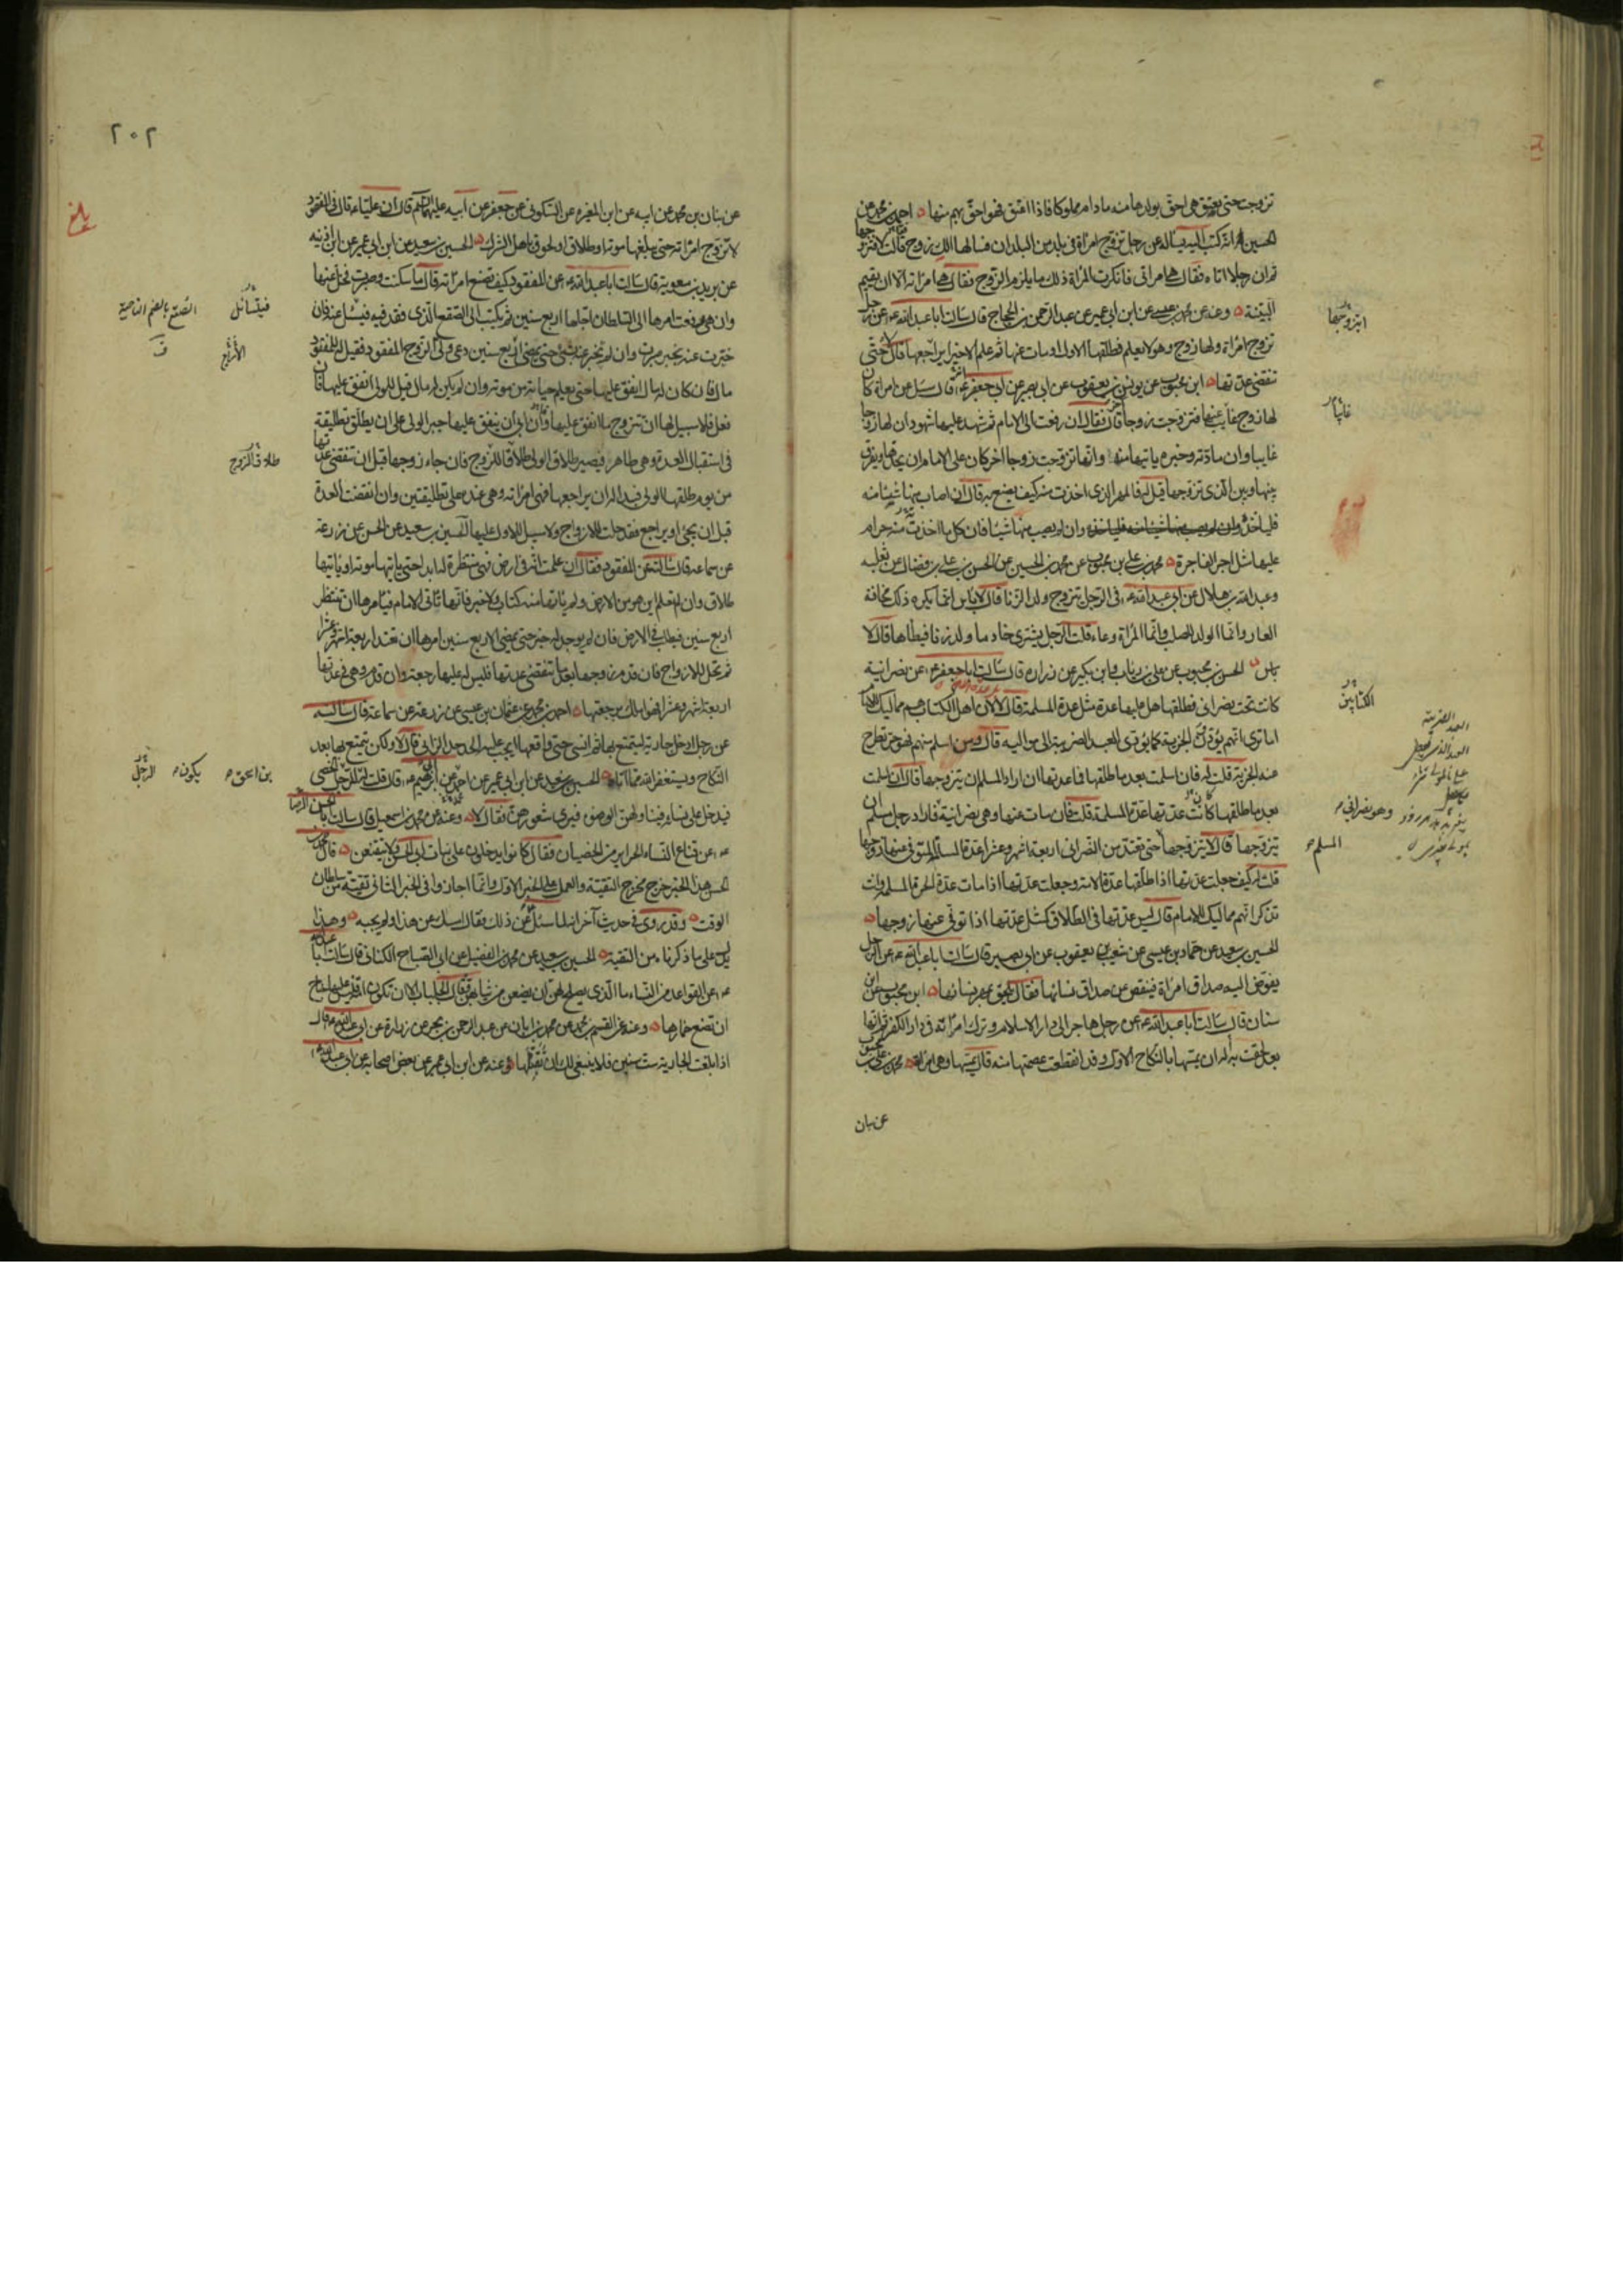 تزوجت حتى يعتق هي احق بولدها منه مادام مملوكا فاذا اعتق فهو احق بهم منها احمد بن محمد عن
الحسين انه كتب اليه يساله عن رجل تزوج امراة في بلد من البلدان فسالها الك زوج قالت لا فتزوجها
ثم ان رجلا اتاه فقال هي امراتي فانكرت المراة ذلك ما يلزم الزوج فقال هي امراته الا ان يقيم
البينة وعنه عن محمد بن عيسى عن ابن ابي عمير عن عبد الرحمن بن الحجاج قال سالت ابا عبد الله ع عن رجل
تزوج امراة ولها زوج وهو لا يعلم فطلقها الاول او مات عنها ثم علم الاخير ايراجعها قال لا حتى
تنقضي عدتها ابن محبوب عن يونس بن يعقوب عن ابي بصير عن ابي جعفر ع قال سئل عن امراة كان
لها زوج غايب عنها فتزوجت زوجا اخر قال فقال ان رفعت الى الامام ثم شهد عليها شهود ان لها زوجا
غايبا وان مادته وخبره ياتيها منه وانها تزوجت زوجا اخر كان على الامام ان يحدها ويفرق
بينها وبين الذي تزوجها قيل له فالمهر الذي اخذت منه كيف يصنع به قال ان اصاب منها شيئا منه
فلياخذه وان لم يصب منها شيئا فان كل ما اخذت منه حرام
عليها مثل اجر الفاجرة محمد بن علي بن محبوب عن محمد بن الحسين عن الحسن بن علي بن فضال عن ثعلبه
وعبد الله بن هلال عن ابي عبد الله ع في الرجل يتزوج ولد الزنا قال لا باس انما يكره ذلك مخافة
العار وانما الولد للصلب وانما المراة وعاء قلت الرجل يشتري خادما ولد زنا فيطاها قال لا
باس الحسن بن محبوب عن علي بن رئاب وابن بكير عن زرارة قال سالت ابا جعفر ع عن نصرانية
كانت تحت نصراني فطلقها هل عليها عدة مثل عدة المسلمة قال لا لان اهل الكتاب هم مماليك للامام
اما ترى انهم يؤدون الجزية كما يؤدي العبد الضريبة الى مواليه قال ومن اسلم منهم فهو حر تطرح
عنه الجزية قلت له فان اسلمت بعد ما طلقها فما عدتها ان اراد المسلم ان يتزوجها قال ان اسلمت
بعد ما طلقها كانت عدتها عدة المسلمة قلت فان مات عنها وهي نصرانية فاراد رجل مسلم ان
يتزوجها قال لا يتزوجها حتى تعتد من النصراني اربعة اشهر وعشرا عدة المسلمة المتوفى عنها زوجها
قلت له كيف جعلت عدتها اذا طلقها عدة الامة وجعلت عدتها اذا مات عدة الحرة المسلمة وانت
تذكر انهم مماليك الامام قال ليس عدتها في الطلاق كمثل عدتها اذا توفي عنها زوجها
الحسين بن سعيد عن حماد بن عيسى عن شعيب بن يعقوب عن ابي بصير قال سالت ابا عبد الله ع عن الرجل
يفوض اليه صداق امراة فينقص عن صداق نسائها فقال يلحق بمهر نسائها ابن محبوب عن ابن
سنان قال سالت ابا عبد الله ع عن رجل هاجر الى دار الاسلام وترك امراته في دار الكفر ثم انها
بعد لحقت به اله ان يمسها بالنكاح الاول او قد انقطعت عصمتها منه قال يمسها وهي امراته محمد بن علي بن محبوب
عن بنان
ايتزوجها
غائبا
الكتابين
وهو نصراني
المسلم
٢٠٢
بلغ
عن بنان بن محمد عن ابيه عن ابن المغيرة عن السكوني عن جعفر عن ابيه عليهما السلام قال ان عليا ع قال في المفقود
لا تتزوج امراته حتى يبلغها موته او طلاق او لحوق باهل الشرك الحسين بن سعيد عن ابن ابي عمير عن ابن اذينه
عن بريد بن معوية قال سالت ابا عبد الله ع عن المفقود كيف تصنع امراته قال ما سكتت وصبرت فخل عنها
وان هي رفعت امرها الى السلطان اجلها اربع سنين ثم يكتب الى الصقع الذي فقد فيه فيسئل عنه فان
خبرت عنه بخبر صبرت وان لم تخبر عنه بشئ حتى يمضي اربع سنين دعي ولي الزوج المفقود فقيل له للمفقود
مال فان كان له مال انفق عليها حتى يعلم حياته من موته وان لم يكن له مال قيل للولي انفق عليها فان
فعل فلا سبيل لها ان تتزوج ما انفق عليها وان ابى ان ينفق عليها جبر الولي على ان يطلق تطليقة
في استقبال العدة وهي طاهر فيصير طلاق الولي طلاقا للزوج فان جاء زوجها قبل ان تنقضي عدتها
من يوم طلقها الولي فبدا له ان يراجعها فهي امراته وهي عنده على تطليقتين وان انقضت العدة
قبل ان يجئ او يراجع فقد حلت للازواج ولا سبيل للاول عليها الحسين بن سعيد عن الحسن عن زرعة
عن سماعة قال سالته عن المفقود فقال ان علمت انه في ارض فهي منتظرة له ابدا حتى ياتيها موته او ياتيها
طلاق وان لم تعلم اين هو من الارض ولم ياتها منه كتاب ولا خبر فانها تاتي الامام فيامرها ان تنتظر
اربع سنين فيطلب في الارض فان لم يوجد له خبر حتى يمضي الاربع سنين امرها ان تعتد اربعة اشهر وعشرا
ثم تحل للازواج فان قدم زوجها بعد ما تنقضي عدتها فليس له عليها رجعة وان قدم وهي في عدتها
اربعة اشهر وعشرا فهو املك برجعتها احمد بن محمد عن عثمان بن عيسى عن زرعة عن سماعة قال سالته
عن رجل ادخل جارية ليتمتع بها ثم انسي حتى واقعها ايجب عليه الحد حد الزاني قال لا ولكن يتمتع بها بعد
النكاح ويستغفر الله مما اتاه الحسين بن سعيد عن ابن ابي عمير عن احمد عن ابي ابرهيم ع قال قلت له للرجل الخصي
يدخل على نسائه فيناولهن الوضوء فيرى شعورهن فقال لا وعنه عن محمد بن اسمعيل قال سالت ابا الحسن الرضا
ع عن قناع النساء الحراير من الخصيان فقال كانوا يدخلون على بنات ابي الحسن ولا يتقنعن قال محمد بن
الحسن هذا الخبر خرج مخرج التقية والعمل على الخبر الاول وانما اجازوا في الخبر الثاني تقية من سلطان
الوقت وقد روي في حديث آخر انه لما سئل عن ذلك فقال امسك عن هذا ولم يجبه وهذا
يدل على ما ذكرناه من التقية الحسين بن سعيد عن محمد بن الفضيل عن ابي الصباح الكناني قال سالت ابا عبد الله
ع عن القواعد من النساء ما الذي يصلح لهن ان يضعن من ثيابهن فقال الجلباب الا ان تكون امة فليس عليها جناح
ان تضع خمارها وعنه عن القسم بن محمد عن محمد بن ابان عن عبد الرحمن بن بحر عن زرارة عن ابي عبد الله ع قال
اذا بلغت الجارية ست سنين فلا ينبغي لك ان تقبلها وعنه عن ابن ابي عمير عن بعض اصحابه عن ابي عبد الله ع
فيتسائل
الصقع بالضم الناحية
ق
الأربع
طلاق الزوج
بن اسحق
يكون
الرجل